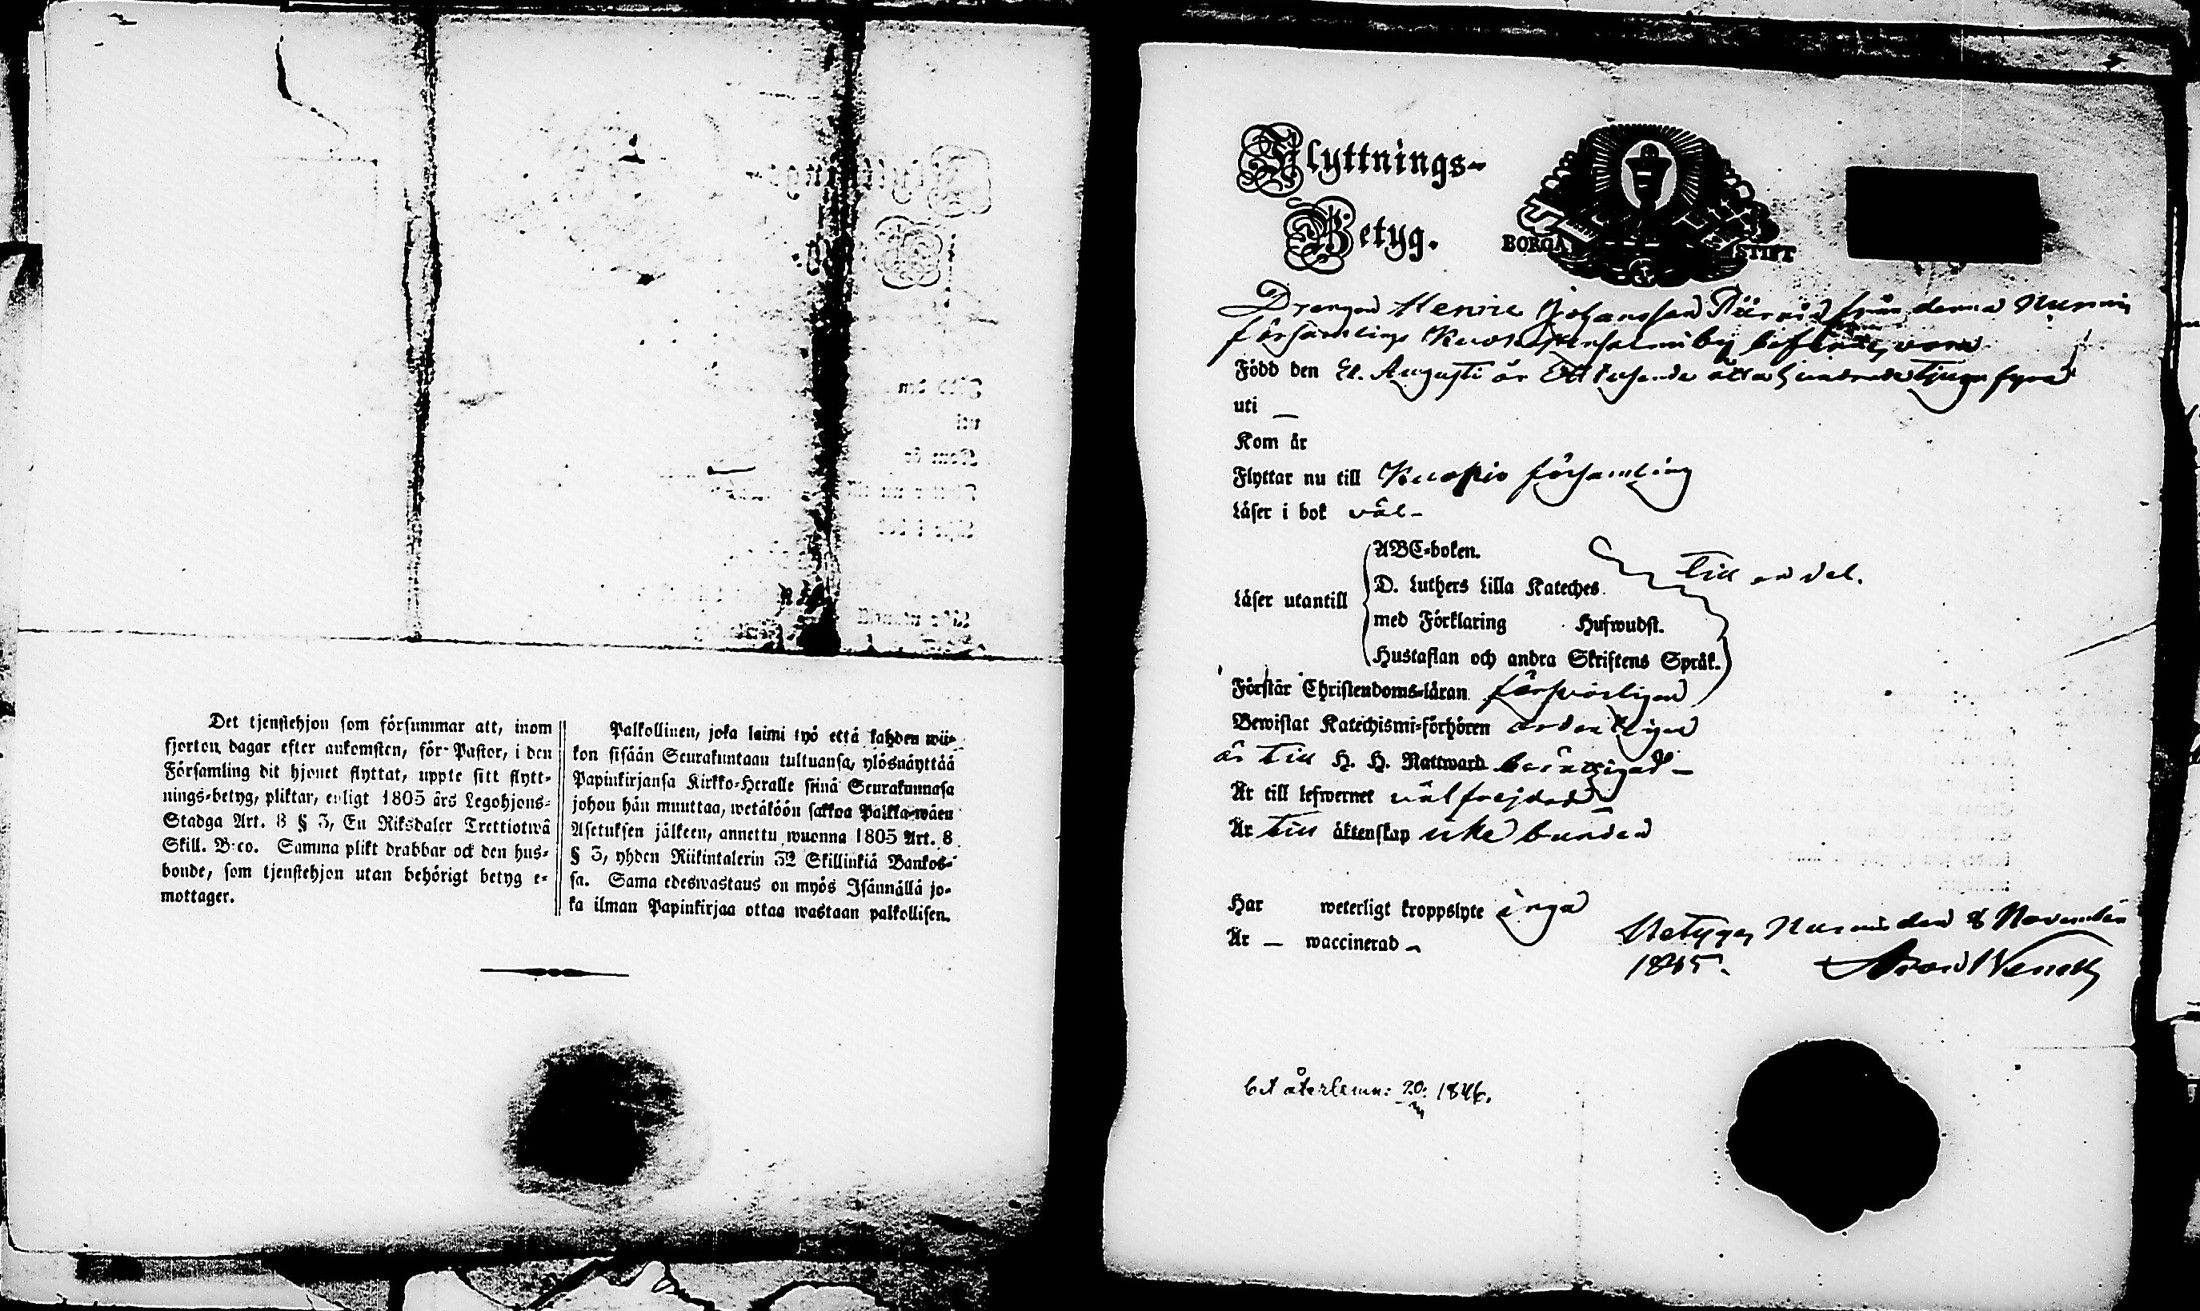 Det tjenstehjon som försummar att, inom
fjorton dagar efter ankomsten, för Pastor, i den
Församling dit hjonet flyttat, uppte sitt flytt-
nings-betyg, pliktar, enligt 1805 års Legohjons-
Stadga Art. 8 § 3, En Riksdaler Trettiotwå
Skill. B:co. Samma plikt drabbar ock den hus-
bonde, som tjenstehjon utan behörigt betyg e-
mottager.
Palkollinen, joka laimi lyö että kahden wii-
kon sisään Seurakuntaan tultuansa, ylösnäyttää
Papinkirjansa Kirkko-Heralle siinä Seurakunnasa
johon hän muuttaa, wetäköön sakkoa Palkka-wäen
Asetuksen jälkeen, annettu wuonna 1805 Art. 8
§ 3, yhden Riikintalerin 32 Skillinkiä Bankos-
sa. Sama edeswastaus on myös Isännällä jo-
ka ilman Papinkirjaa ottaa wastaan palkollisen.
Flyttnings-
Betyg.
BORGÅ STIFT
Drengen Henric Johansson från denna Nurmis
församlings by
Född den Augusti år Ett tusende åttahundrade tjugufyra
uti —
Kom år
Flyttar nu till Kuopio församling
Läser i bok väl -
Läser utantill
ABC-boken.
D. Luthers Lilla Kateches.
med Förklaring Hufwudst.
Hustaflan och andra Skriftens Språk.
Till en del.
Förstår Christendoms-läran försvarligen
Bewistat Katechismi-förhören ordentligen
är till H. H. Nattward berättigad -
Är till lefwernet välfrejdad
Är till äktenskap icke bunden
Har weterligt kroppslyte inga
Är — waccinerad -
Betygar Nurmis den 8 November
1845.
bet återlemn: 20: 1846.